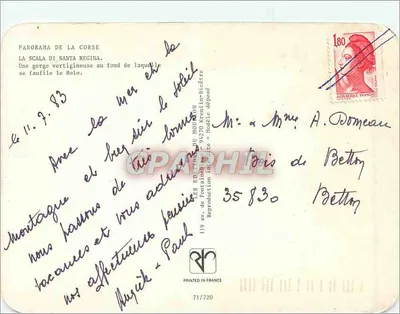 PANORAMA DE LA CORSE
LA SCALA DI SANTA REGINA.
Une gorge vertigineuse au fond de laquelle
se faufile le Golo.
le 11.7.83
Avec la mer et la
montagne et bien sûr le soleil
nous passons de très bonnes
vacances et vous adressons
nos affectueuses pensées
+ Paul
LES EDITIONS DU MOUTON
119 av. de Fontainebleau 94270 Kremlin-Bicêtre
Reproduction interdite - Modèle déposé
1,80
Mr & Mme A. Domeau
Bois de Betton
35830 Betton
CPAPHIL
PRINTED IN FRANCE
71/720